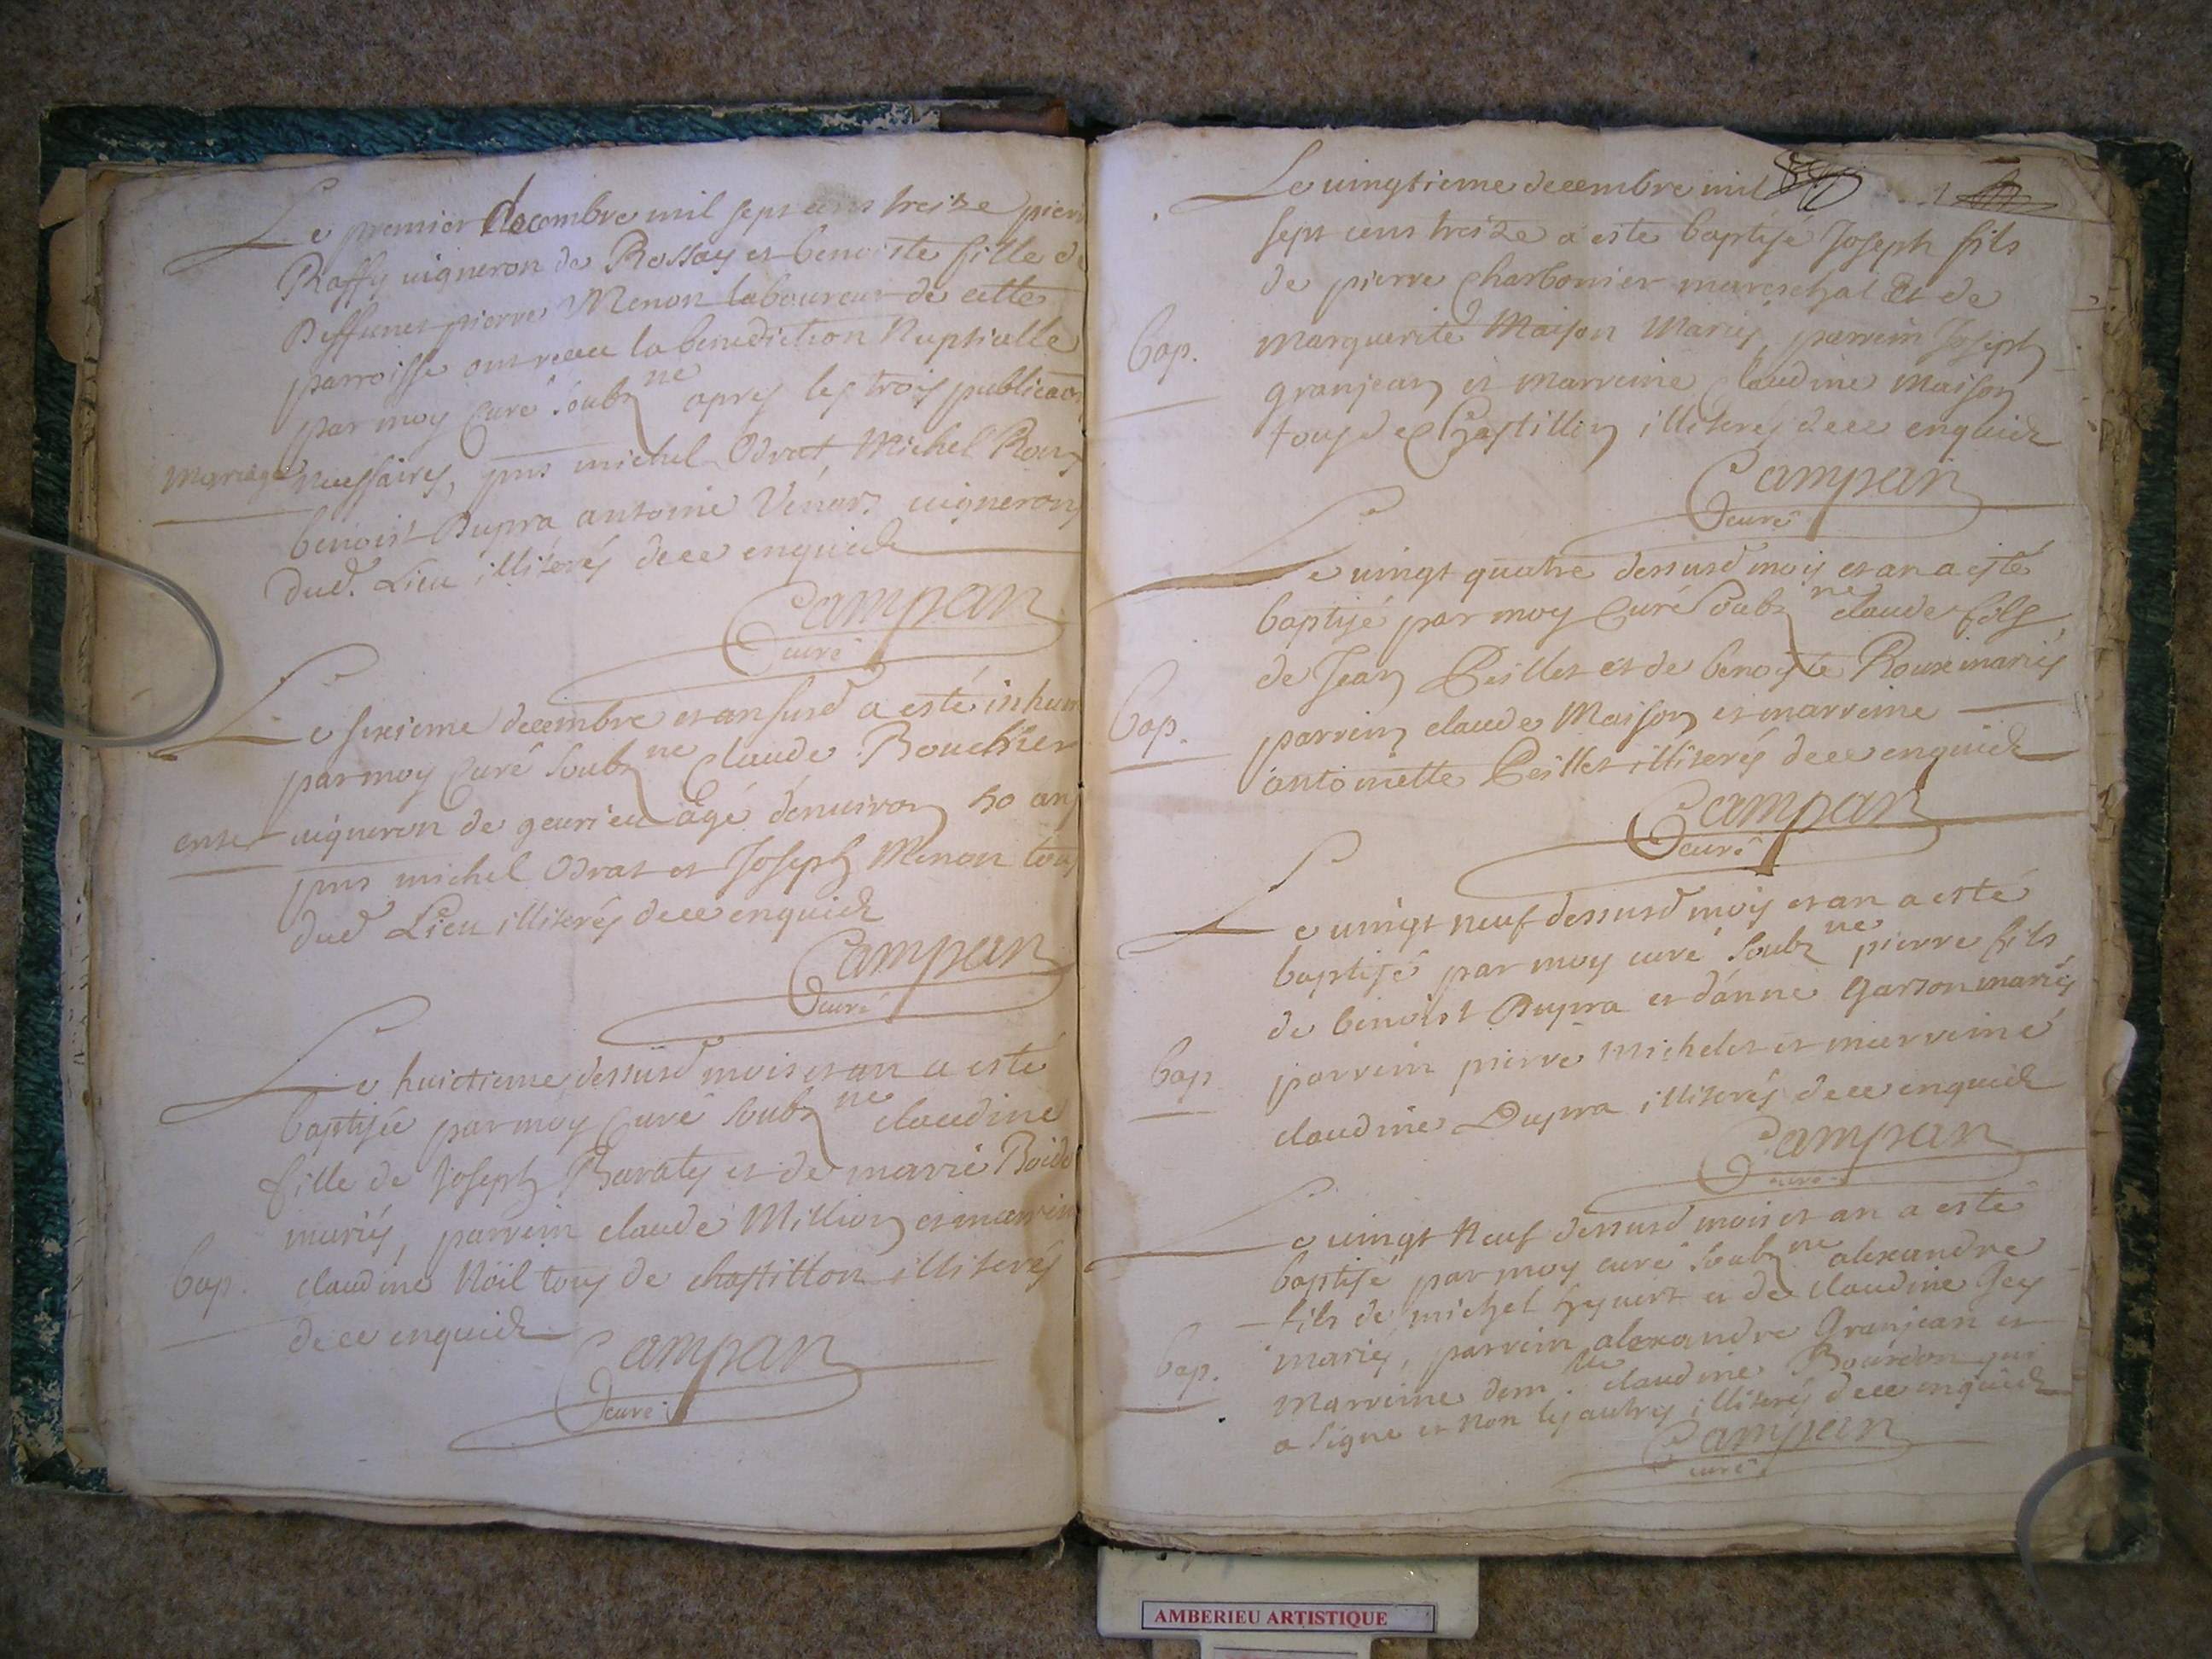 Le premier decembre mil sept cens treize pierre
Raffy uigneron de Rossay et benoiste fille de
Deffunct pierre Menon laboureur de cette
parroisse ont receu la benediction Nuptialle
par moy Curé soubz ne apres les trois publicaons
Mariage
necessaires, pns michel Odrat, Michel Roux
benoist Dupra antoine Venard uignerons
dud. Lieu illiterés de ce enquich
Campan
curé
Le sixieme decembre et an susd a esté inhumé
par moy Curé soubz ne Claude Bouchier
enter
uigneron de geurieu agé denuiron 50 ans
pns michel Odrat et Joseph Menon tous
dud Lieu illiterés de ce enquich
Campan
curé
Le huictieme dessusd mois et an a esté
baptisée par moy Curé soubz ne claudine
fille de Joseph Baraty et de marie
mariés, parrein claude Million et marreine
bap.
claudine Nöil tous de chastillon illiterés
de ce enquich
Campan
curé
Le uingtieme decembre mil
sept cens treize a este baptisé Joseph fils
de pierre Charbonier mareschal Et de
bap.
marguerite Maison Mariés, parrein Joseph
granjean et marreine Claudine Maison
tous de Chastillon illiterés de ce enquich
Campan
curé
Le uingt quatre dessusd mois et an a esté
baptisé par moy Curé soubz ne claude fils
de Jean Peillet et de benoiste Roux mariés
bap.
parrein claude Maison et marreine
antoinette Peillet illiterés de ce enquich
Campan
curé
Le uingt neuf dessusd mois et an a esté
baptisé par moy curé soubz ne pierre fils
de benoist Dupra et d'anne Garson mariés
bap
parrein pierre Michelet et marreine
claudine Dupra illiterés de ce enquich
Campan
curé
Le uingt Neuf dessusd mois et an a esté
baptisé par moy curé soubz ne alexandre
fils de michel hyuert et de claudine Gey
bap.
mariés, parrein alexandre Granjean et
Marreine dem.lle claudine Bourdon qui
a signe et Non les autres illiterés de ce enquich
Campan
curé
AMBERIEU ARTISTIQUE